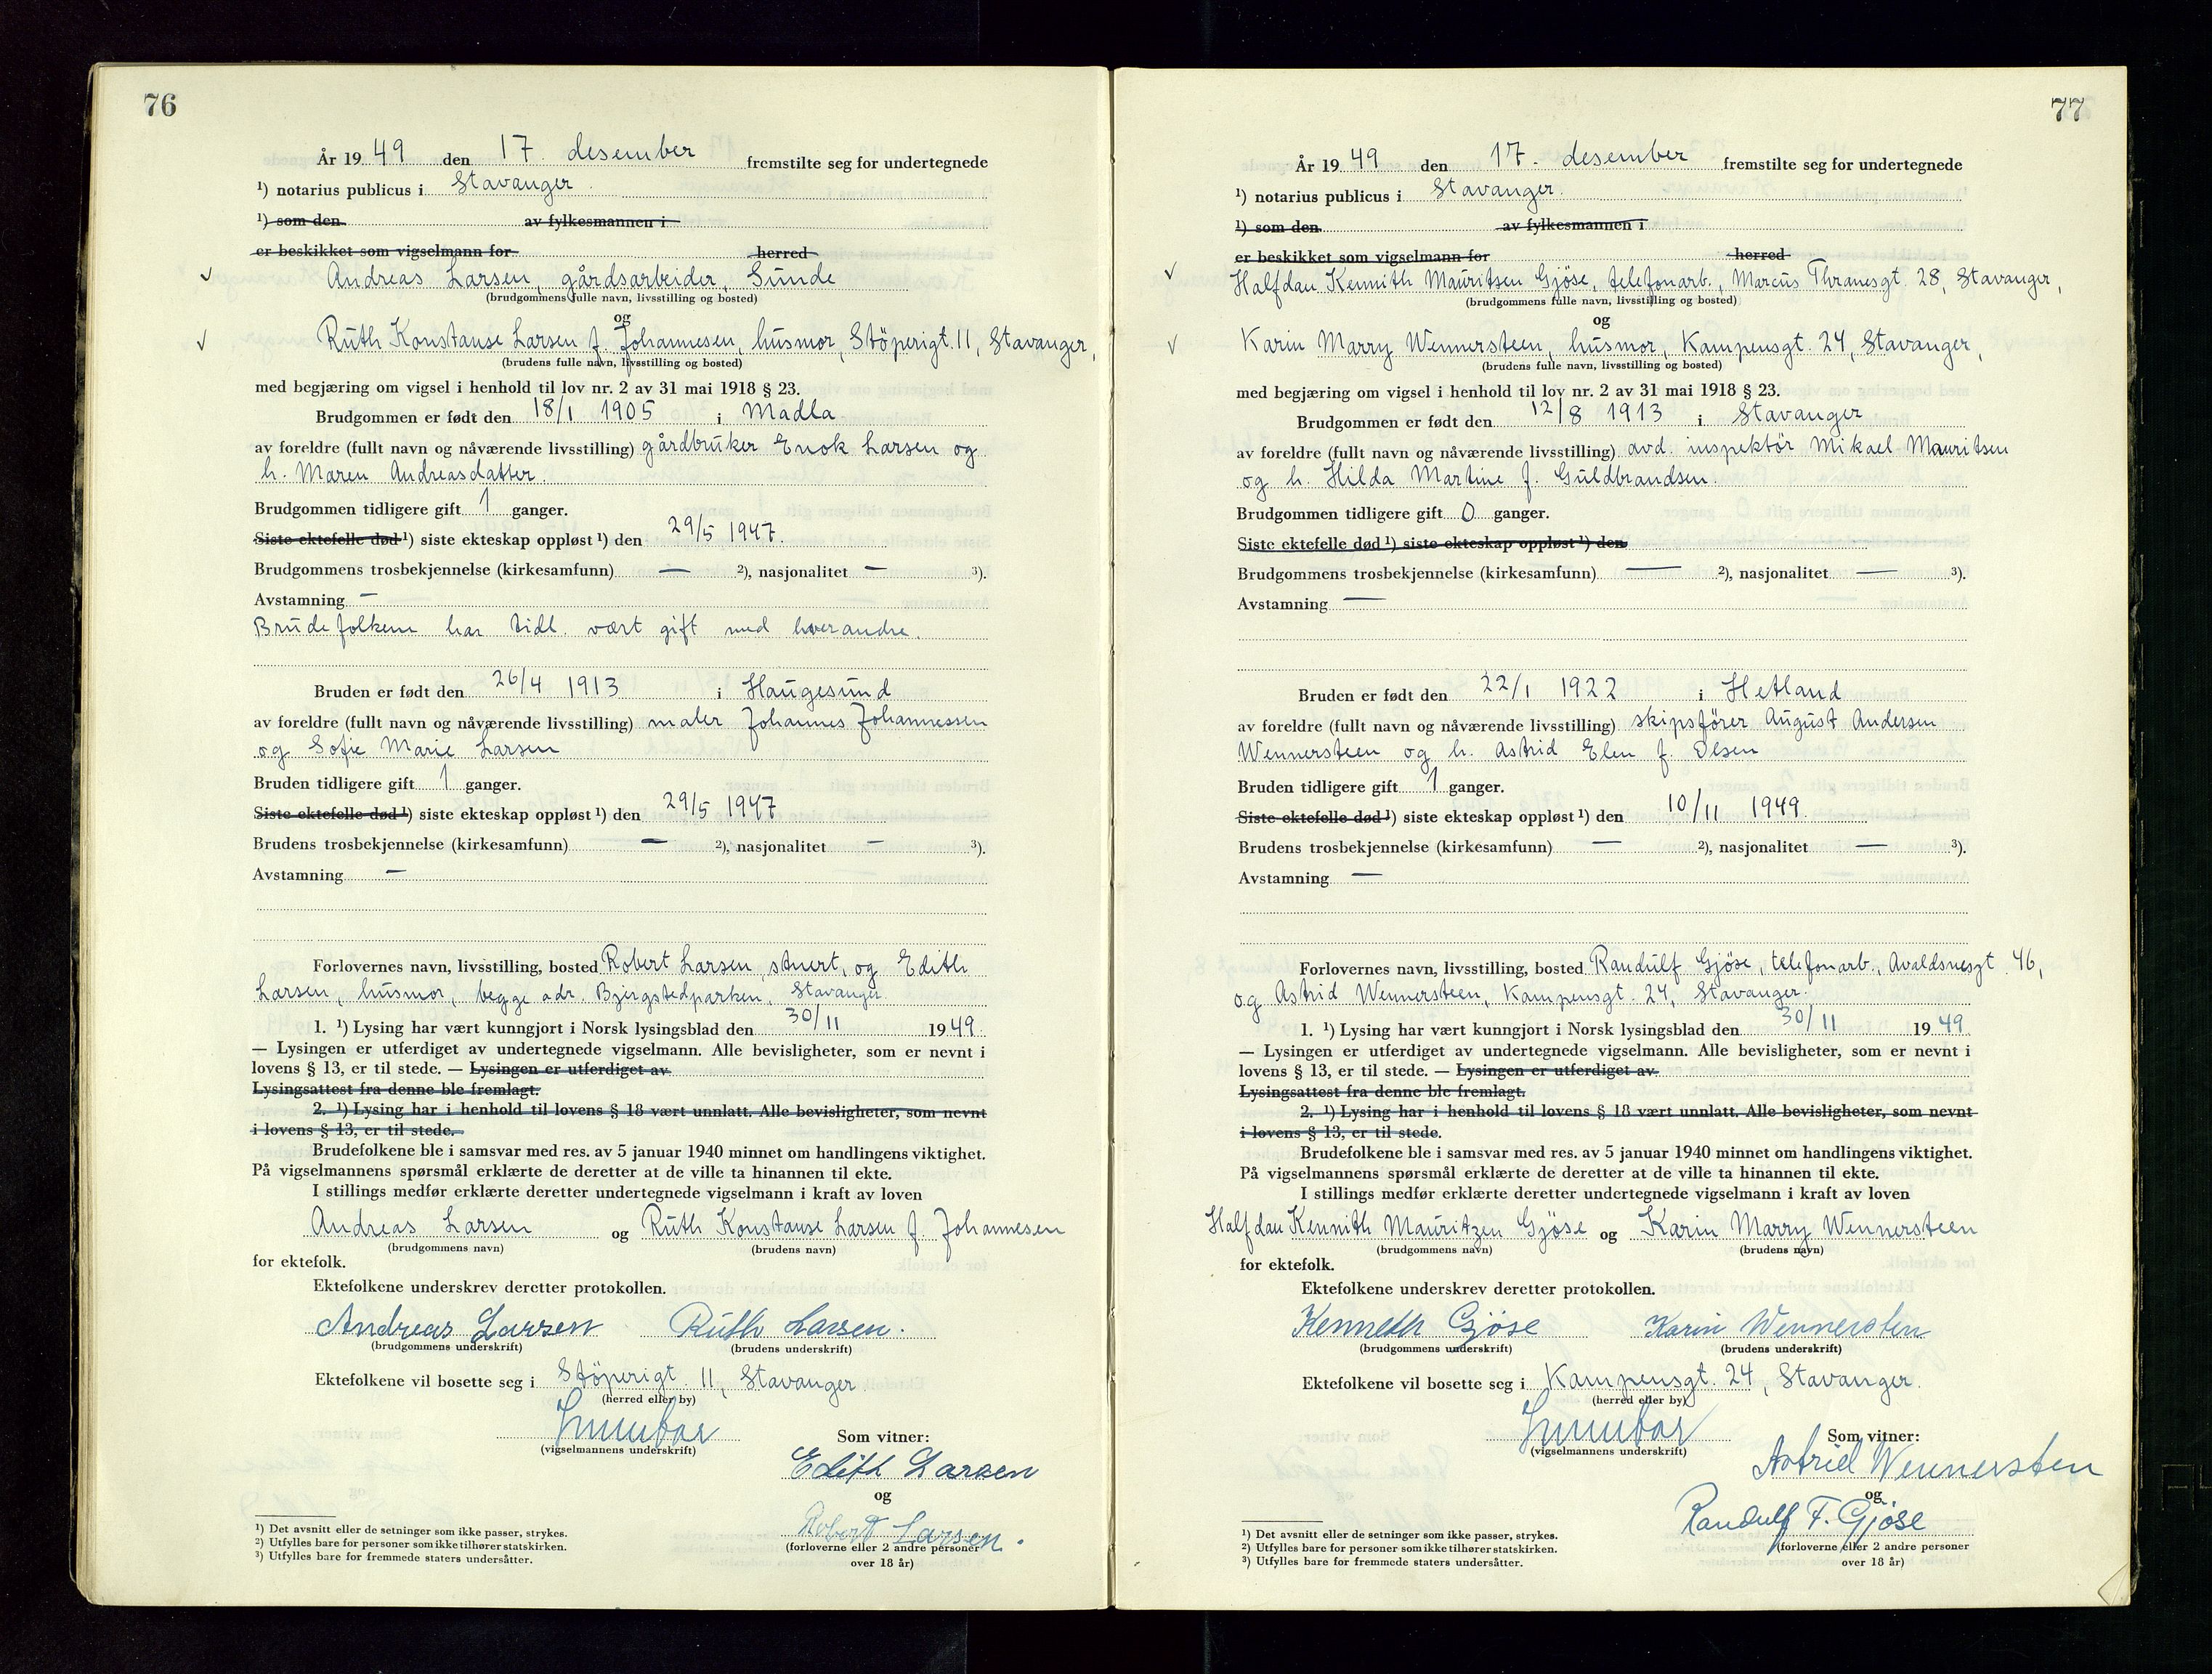 76
År 19 49 den 17. desember fremstilte seg for undertegnede
¹) notarius publicus i Stavanger.
¹) som den av fylkesmannen i
er beskikket som vigselmann for herred
Andreas Larsen, gårdsarbeider, Sunde
(brudgommens fulle navn, livsstilling og bosted)
og
Ruth Konstanse Larsen f. Johannesen, husmor, Stöperigt. 11, Stavanger,
(brudens fulle navn, livsstilling og bosted)
med begjæring om vigsel i henhold til lov nr. 2 av 31 mai 1918 § 23.
Brudgommen er født den 18/1 1905 i Madla
av foreldre (fullt navn og nåværende livsstilling) gårdbruker Enok Larsen og
h. Maren Andreasdatter.
Brudgommen tidligere gift 1 ganger.
Siste ektefelle død ¹) siste ekteskap oppløst ¹) den 29/5 1947.
Brudgommens trosbekjennelse (kirkesamfunn) — ²), nasjonalitet — ³).
Avstamning —
Brudefolkene har tidl. vært gift med hverandre.
Bruden er født den 26/4 1913 i Haugesund
av foreldre (fullt navn og nåværende livsstilling) maler Johannes Johannessen
og Sofie Marie Larsen
Bruden tidligere gift 1 ganger.
Siste ektefelle død ¹) siste ekteskap oppløst ¹) den 29/5 1947
Brudens trosbekjennelse (kirkesamfunn) — ²), nasjonalitet — ³).
Avstamning —
Forlovernes navn, livsstilling, bosted Robert Larsen, stuert, og Edith
Larsen, husmor, begge adr. Bjergstedparken, Stavanger.
1. ¹) Lysing har vært kunngjort i Norsk lysingsblad den 30/11 19 49.
— Lysingen er utferdiget av undertegnede vigselmann. Alle bevisligheter, som er nevnt i
lovens § 13, er til stede. — Lysingen er utferdiget av
Lysingsattest fra denne ble fremlagt.
2. ¹) Lysing har i henhold til lovens § 18 vært unnlatt. Alle bevisligheter, som nevnt
i lovens § 13, er til stede.
Brudefolkene ble i samsvar med res. av 5 januar 1940 minnet om handlingens viktighet.
På vigselmannens spørsmål erklærte de deretter at de ville ta hinannen til ekte.
I stillings medfør erklærte deretter undertegnede vigselmann i kraft av loven
Andreas Larsen og Ruth Konstanse Larsen f. Johannesen
(brudgommens navn) (brudens navn)
for ektefolk.
Ektefolkene underskrev deretter protokollen.
Andreas Larsen Ruth Larsen.
(brudgommens underskrift) (brudens underskrift)
Ektefolkene vil bosette seg i Stöperigt. 11, Stavanger.
(herred eller by)
(vigselmannens underskrift)
Som vitner:
Edith Larsen
og
Robert Larsen.
(forloverne eller 2 andre personer
over 18 år)
¹) Det avsnitt eller de setninger som ikke passer, strykes.
²) Utfylles bare for personer som ikke tilhører statskirken.
³) Utfylles bare for fremmede staters undersåtter.
77
År 19 49 den 17. desember fremstilte seg for undertegnede
¹) notarius publicus i Stavanger.
¹) som den av fylkesmannen i
er beskikket som vigselmann for herred
Halfdan Kennith Mauritsen Gjöse, telefonarb., Marcus Thranesgt. 28, Stavanger,
(brudgommens fulle navn, livsstilling og bosted)
og
Karin Marry Wennersteen, husmor, Kampensgt. 24, Stavanger,
(brudens fulle navn, livsstilling og bosted)
med begjæring om vigsel i henhold til lov nr. 2 av 31 mai 1918 § 23.
Brudgommen er født den 12/8 1913 i Stavanger
av foreldre (fullt navn og nåværende livsstilling) avd. inspektör Mikael Mauritsen
og h. Hilda Martine f. Guldbrandsen.
Brudgommen tidligere gift 0 ganger.
Siste ektefelle død ¹) siste ekteskap oppløst ¹) den
Brudgommens trosbekjennelse (kirkesamfunn) — ²), nasjonalitet — ³).
Avstamning —
Bruden er født den 22/1 1922 i Hetland
av foreldre (fullt navn og nåværende livsstilling) skipsförer August Andersen
Wennersteen og h. Astrid Elen f. Olsen
Bruden tidligere gift 1 ganger.
Siste ektefelle død ¹) siste ekteskap oppløst ¹) den 10/11 1949.
Brudens trosbekjennelse (kirkesamfunn) — ²), nasjonalitet — ³).
Avstamning —
Forlovernes navn, livsstilling, bosted Randulf Gjöse, telefonarb., Avaldsnesgt. 46,
og Astrid Wennersteen, Kampensgt. 24, Stavanger.
1. ¹) Lysing har vært kunngjort i Norsk lysingsblad den 30/11 19 49
— Lysingen er utferdiget av undertegnede vigselmann. Alle bevisligheter, som er nevnt i
lovens § 13, er til stede. — Lysingen er utferdiget av
Lysingsattest fra denne ble fremlagt.
2. ¹) Lysing har i henhold til lovens § 18 vært unnlatt. Alle bevisligheter, som nevnt
i lovens § 13, er til stede.
Brudefolkene ble i samsvar med res. av 5 januar 1940 minnet om handlingens viktighet.
På vigselmannens spørsmål erklærte de deretter at de ville ta hinannen til ekte.
I stillings medfør erklærte deretter undertegnede vigselmann i kraft av loven
Halfdan Kennith Mauritzen Gjöse og Karin Marry Wennersteen
(brudgommens navn) (brudens navn)
for ektefolk.
Ektefolkene underskrev deretter protokollen.
Kenneth Gjöse Karin Wennersten
(brudgommens underskrift) (brudens underskrift)
Ektefolkene vil bosette seg i Kampensgt. 24, Stavanger.
(herred eller by)
(vigselmannens underskrift)
Som vitner:
Astrid Wennersten
og
Randulf F. Gjöse
(forloverne eller 2 andre personer
over 18 år)
¹) Det avsnitt eller de setninger som ikke passer, strykes.
²) Utfylles bare for personer som ikke tilhører statskirken.
³) Utfylles bare for fremmede staters undersåtter.